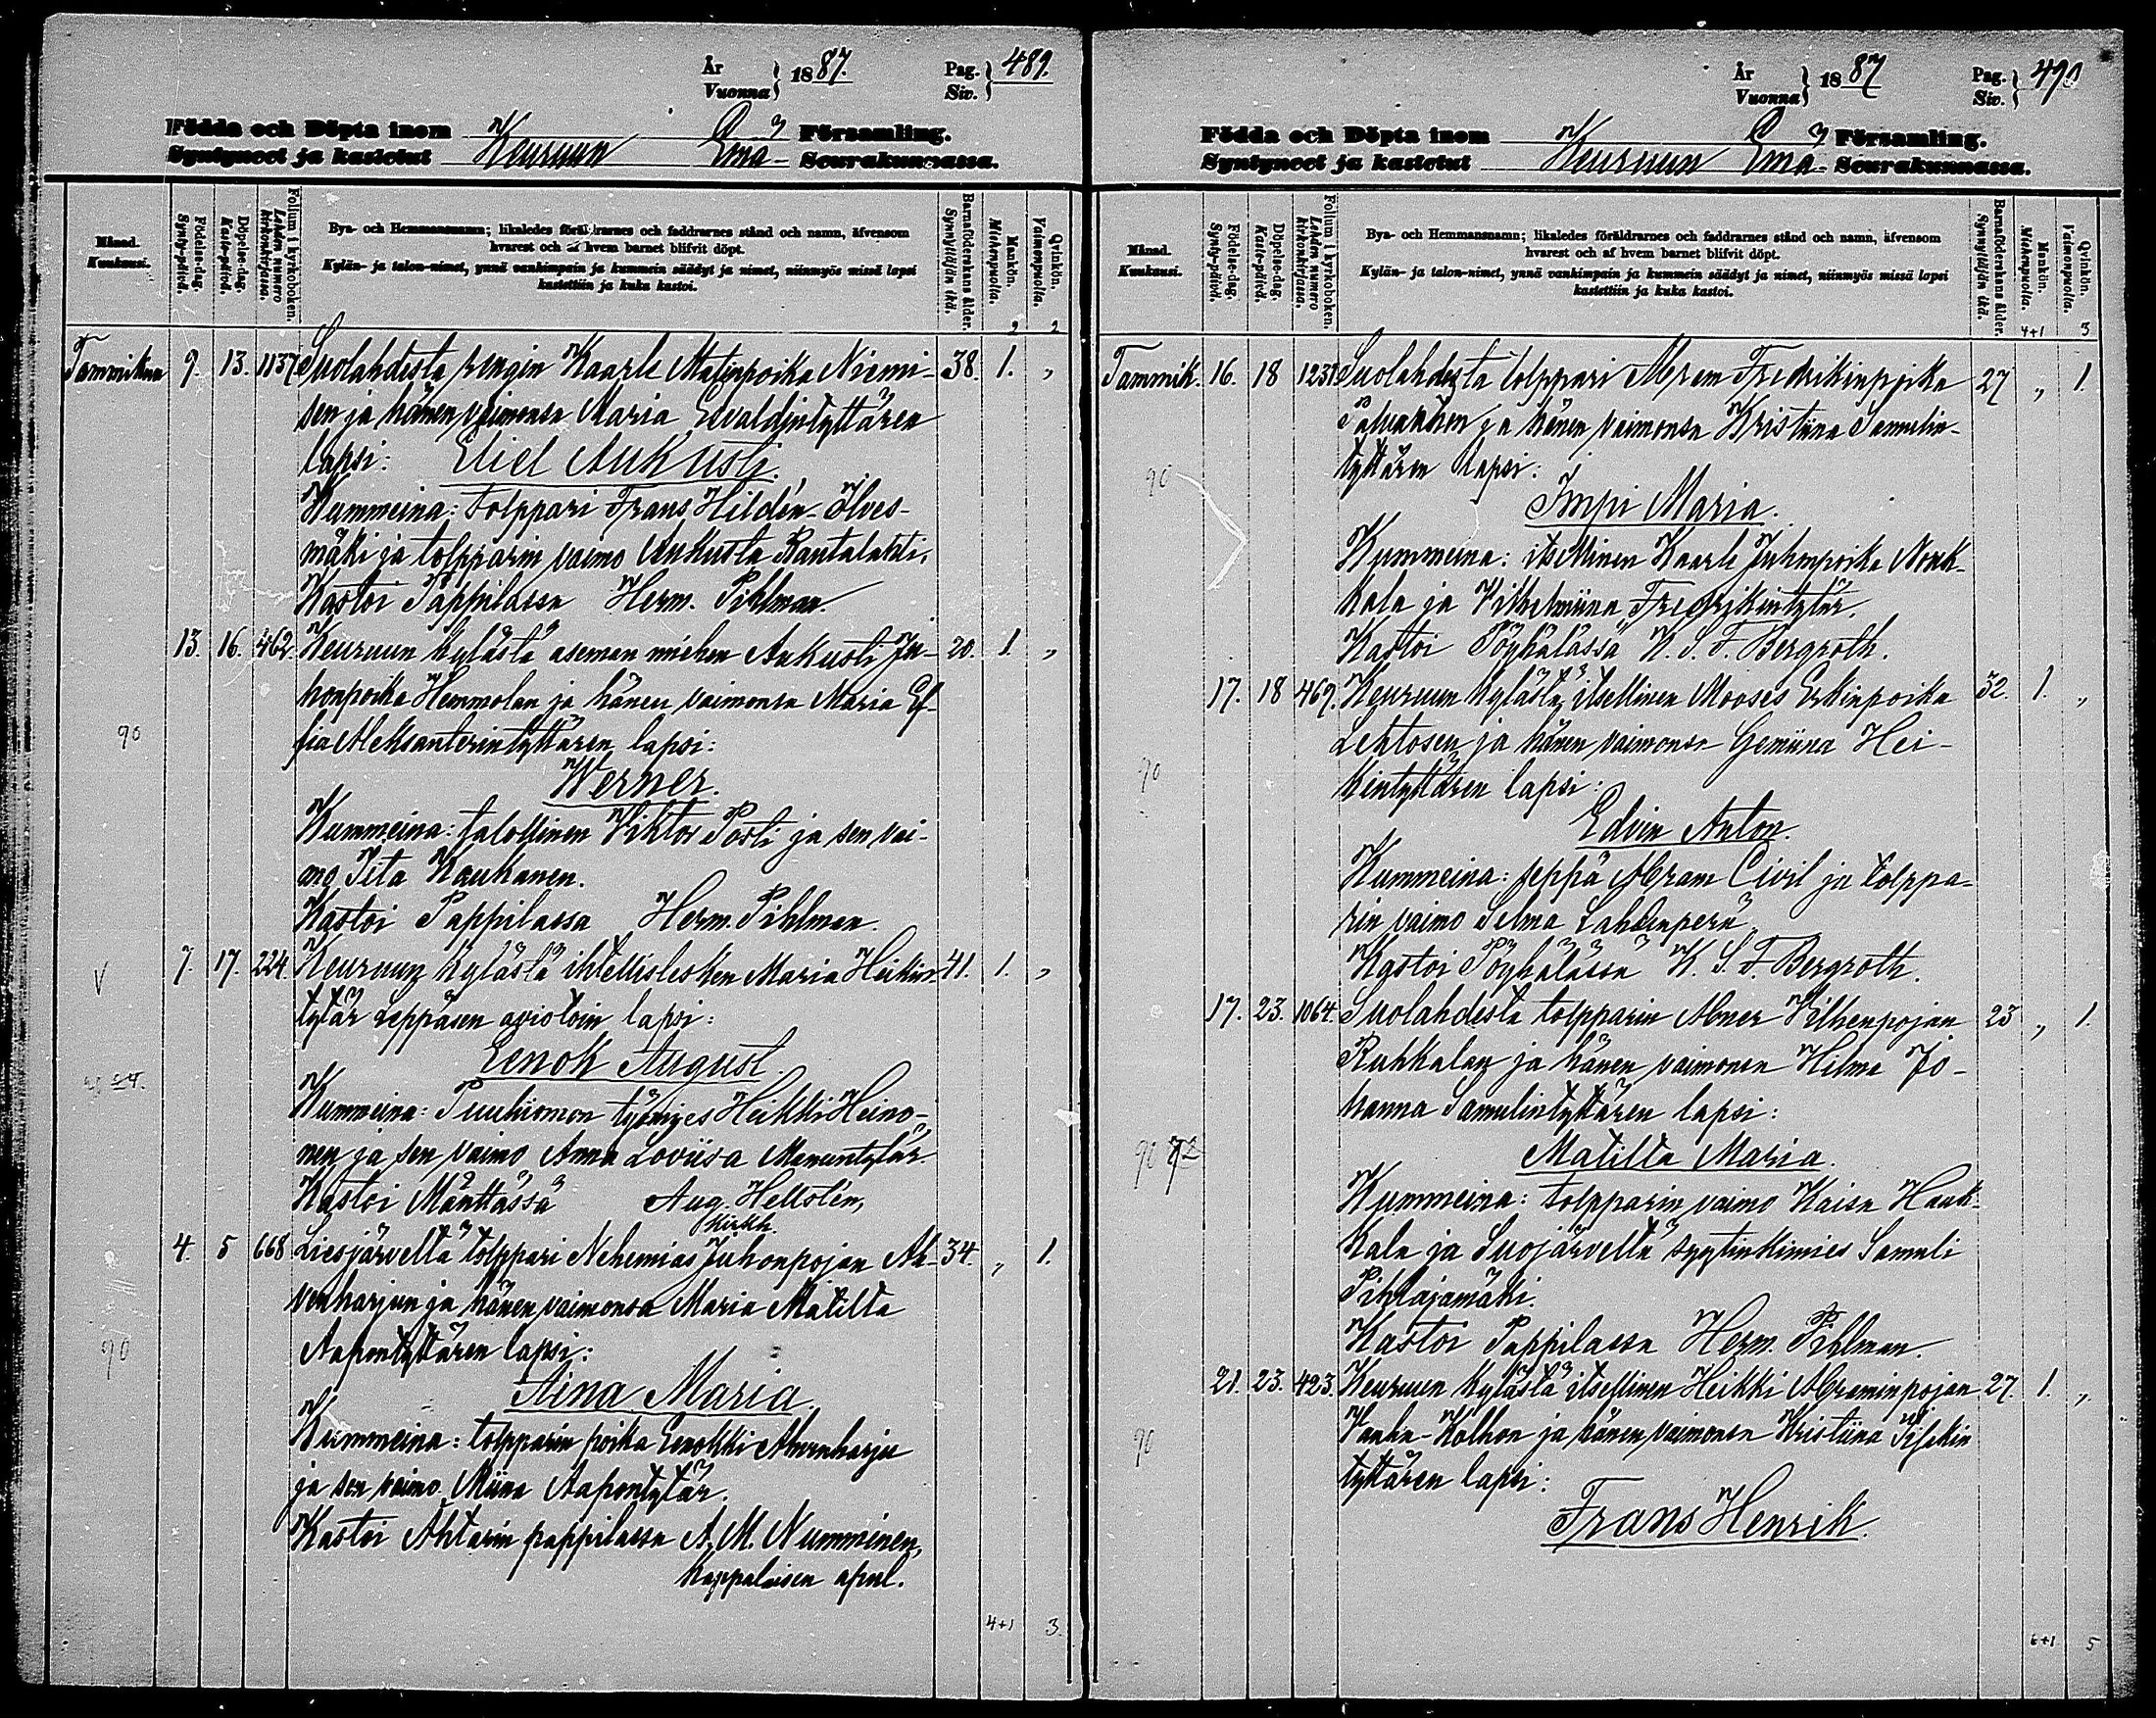 År
Vuonna } 1887. Pag.
Siv. } 489.
Födda och Döpta inom
Syntyneet ja kastetut Keuruun Emä- Församling.
Seurakunnassa.
Månad.
Kuukausi.
Födelse-dag.
Synty-päivä.
Döpelse-dag.
Kaste-päivä.
Folium i kyrkoboken.
Lehden numero
kirkonkirjassa.
Bya- och Hemmansnamn; likaledes föräldrarnes och faddrarnes stånd och namn, äfvensom
hvarest och af hvem barnet blifvit döpt.
Kylän- ja talon-nimet, ynnä vanhimpain ja kummein säädyt ja nimet, niinmyös missä lapsi
kastettiin ja kuka kastoi.
Barnaföderskans ålder.
Synnyttäjän ikä.
Mankön.
Miehenpuolia.
Qvinkön.
Vaimonpuolia.
2 2
Tammikuu 9. 13. 1137 Suolahdesta rengin Kaarle Matinpoika Niemi- 38. 1. „
sen ja hänen vaimonsa Maria Evaldintyttären
lapsi: Eliel Aukusti.
Kummeina: tolppari Frans Hildén-Ölves-
mäki ja tolpparin vaimo Aukusta Rantalahti.
Kastoi Pappilassa Herm. Pihlman.
13. 16. 462. Keuruun kylästä aseman miehen Aukusti Ju- 20. 1. „
honpoika Hemmolan ja hänen vaimonsa Maria Ef-
90
fia Aleksanterintyttären lapsi:
Werner.
Kummeina: talollinen Viktor Posti ja sen vai-
mo Iita Kaukanen.
Kastoi Pappilassa Herm. Pihlman.
V 7. 17. 224. Keuruun kylästä ihtellislesken Maria Heikin- 41. 1. „
tytär Leppäsen aviotoin lapsi:
Eenok August.
Kummeina: Puuhiomon työmies Heikki Heino-
nen ja sen vaimo Anna Loviisa Manuntytär.
Kastoi Mänttässä Aug. Hellstén,
kirkh.
4. 5 668 Liesjärveltä tolppari Nehemias Juhonpojan Ah- 34. „ 1.
venharjun ja hänen vaimonsa Maria Matilta
90
Aapontyttären lapsi:
Aina Maria.
Kummeina: tolpparin poika Eenokki Ahvenharju
ja sen vaimo Miina Aapontytär.
Kastoi Ähtärin pappilassa A. M. Numminen,
kappalaisen apul.
4+1 3.
År
Vuonna } 1887 Pag.
Siv. } 490
Födda och Döpta inom
Syntyneet ja kastetut Keuruun Emä- Församling.
Seurakunnassa.
Månad.
Kuukausi.
Födelse-dag.
Synty-päivä.
Döpelse-dag.
Kaste-päivä.
Folium i kyrkoboken.
Lehden numero
kirkonkirjassa.
Bya- och Hemmansnamn; likaledes föräldrarnes och faddrarnes stånd och namn, äfvensom
hvarest och af hvem barnet blifvit döpt.
Kylän- ja talon-nimet, ynnä vanhimpain ja kummein säädyt ja nimet, niinmyös missä lapsi
kastettiin ja kuka kastoi.
Barnaföderskans ålder.
Synnyttäjän ikä.
Mankön.
Miehenpuolia.
Qvinkön.
Vaimonpuolia.
4+1 3
Tammik. 16. 18 1231 Suolahdesta tolppari Abram Fredrikinpoika 27 „ 1.
ja hänen vaimonsa Kristiina Samulin-
90
tyttären lapsi:
Impi Maria.
Kummeina: itsellinen Kaarle Juhonpoika Nouk-
kala ja Vilhelmiina Fredrikintytär.
Kastoi Pöyhälässä K. S. F. Bergroth.
17. 18 469. Keuruun kylästä, itsellinen Mooses Erkinpoika 32. 1. „
Lehtosen ja hänen vaimonsa Gemiina Hei-
90
kintyttären lapsi:
Edvin Anton.
Kummeina: seppä Abram Civil ja tolppa-
rin vaimo Selma Lahdenperä.
Kastoi Pöyhälässä K. S. F. Bergroth.
17. 23. 1064. Suolahdesta tolpparin Abner Vilhenpojan 23 „ 1.
Ruhkalan ja hänen vaimonsa Hilma Jo-
hanna Samulintyttären lapsi:
90
Matilta Maria.
Kummeina: tolpparin vaimo Kaisa Hauk-
kala ja Suojärveltä syytinkimies Samuli
Pihlajamäki.
Kastoi Pappilassa Herm. Pihlman.
21. 23. 423. Keuruun kylästä itsellinen Heikki Abraminpojan 27. 1. „
90
Vanha-Kolhon ja hänen vaimonsa Kristiina
tyttären lapsi:
Frans Henrik.
6+1 5